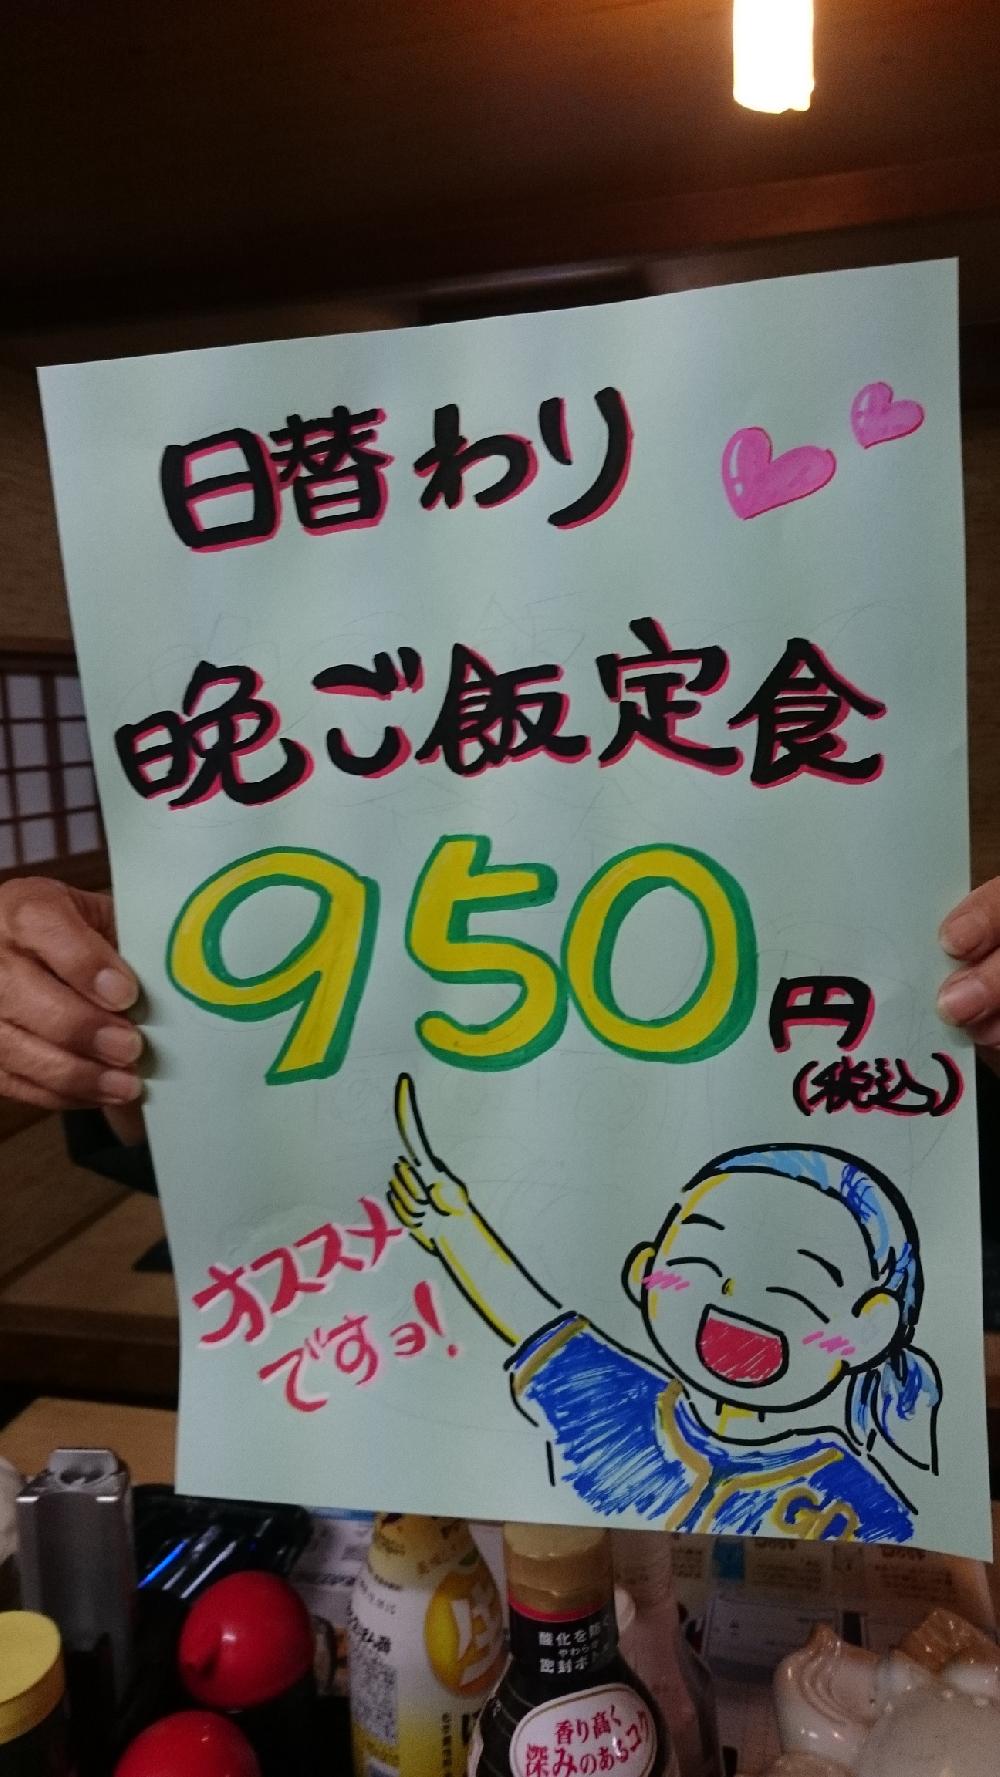 日替わり
晩ご飯定食
950円
(税込)
オススメ
ですョ!
酸化を防ぐ
やわらか
密封ボトル
香り高く
深みのあるコク